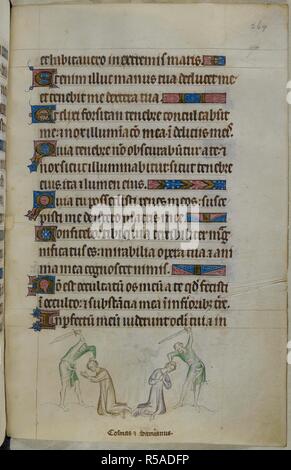 269
et habitauero in extremis maris
Etenim illuc manus tua deducet me
et tenebit me dextera tua
Et dixi forsitan tenebre conculcabunt
me a nox illumīacō mea ī deliciis meis
Quia tenebre nō obscurabūtur a te
nox sicut illuminabitur sicut tenebre
eius ita ⁊ lumen eius
Quia tu possedisti renes meos: susce
pisti me de utero matris mee
Confitebor tibi quia terribiliter mag
nificatus es: mirabilia opera tua ⁊ ani
ma mea cognoscet nimis
Nō est occultatū os meū a te qd fecisti
ī occulto: ⁊ substācia mea ī inferiorib; tre
Inpfectū meū uiderunt oculi tui ⁊ in
Cosmas ⁊ Damianus
alamy stock photo
R5ADFP
www.alamy.com